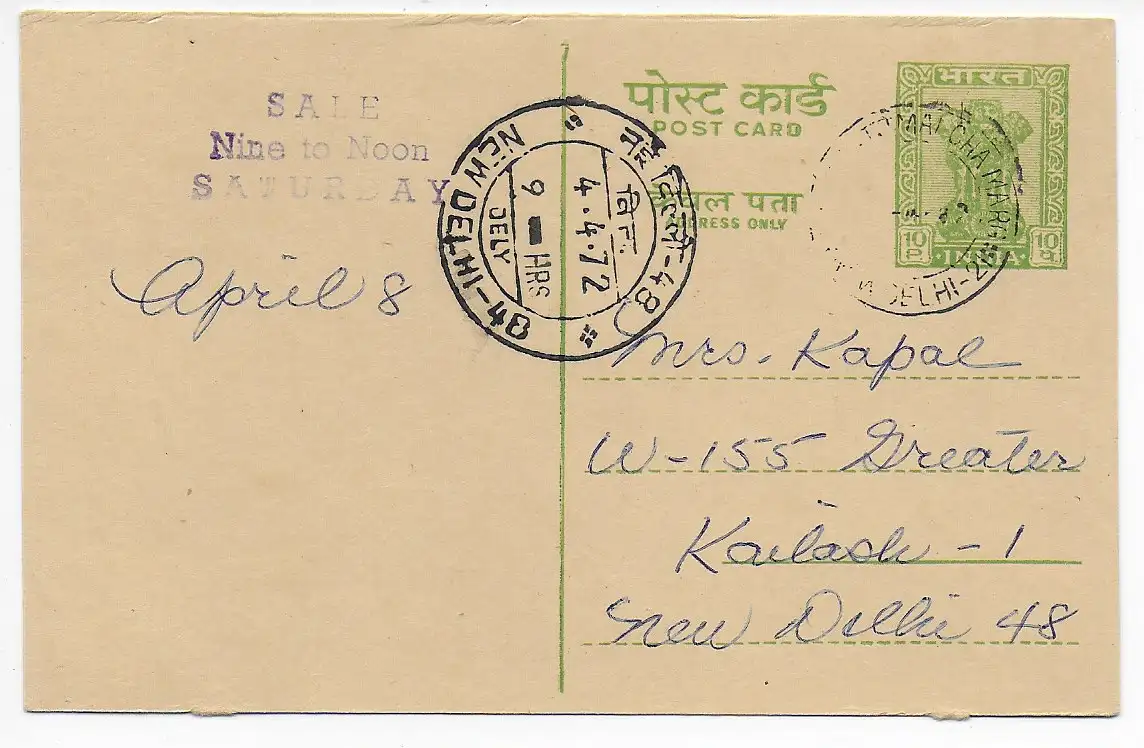 SALE
Nine to Noon
SATURDAY
April 8
नई दिल्ली-48
NEW DELHI-48
वित.
4.4.72
9 HRS
DELY
पोस्ट कार्ड
POST CARD
केवल पता
ADDRESS ONLY
भारत
10 P.
INDIA
10 प
MALCHA MARG
DELHI-2
Mrs. Kapal
W-155 Greater
Kailash - 1
New Delhi 48